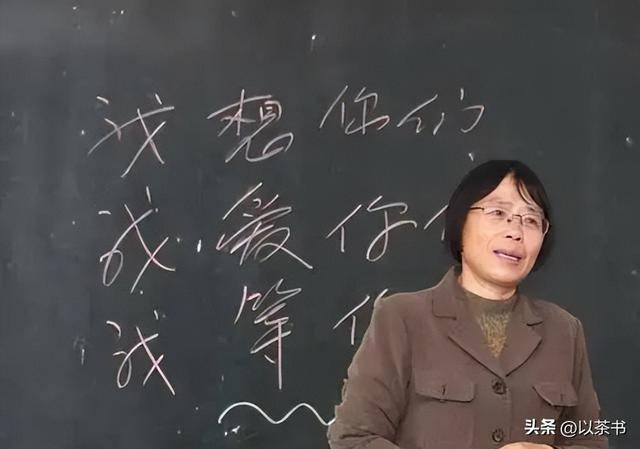 我想你们
我爱你
我等
头条 @以茶书